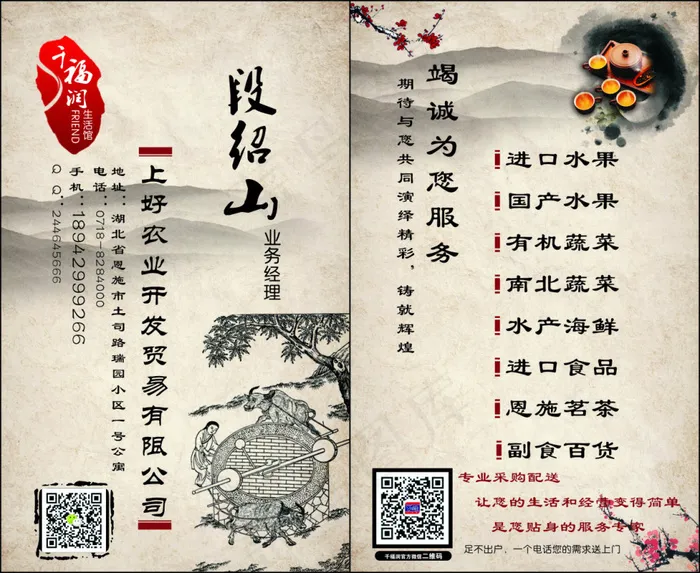 千福润
生活馆
FRIEND
段绍山
业务经理
上好农业开发贸易有限公司
地址：湖北省恩施市土司路瑞园小区一号公寓
电话：0718-8284000
手机：18942999266
Q Q：244645666
竭诚为您服务
期待与您共同演绎精彩，铸就辉煌
进口水果
国产水果
有机蔬菜
南北蔬菜
水产海鲜
进口食品
恩施茗茶
副食百货
专业采购配送
让您的生活和经性变得简单
是您贴身的服务专家
足不出户，一个电话您的需求送上门
千福润官方微信二维码